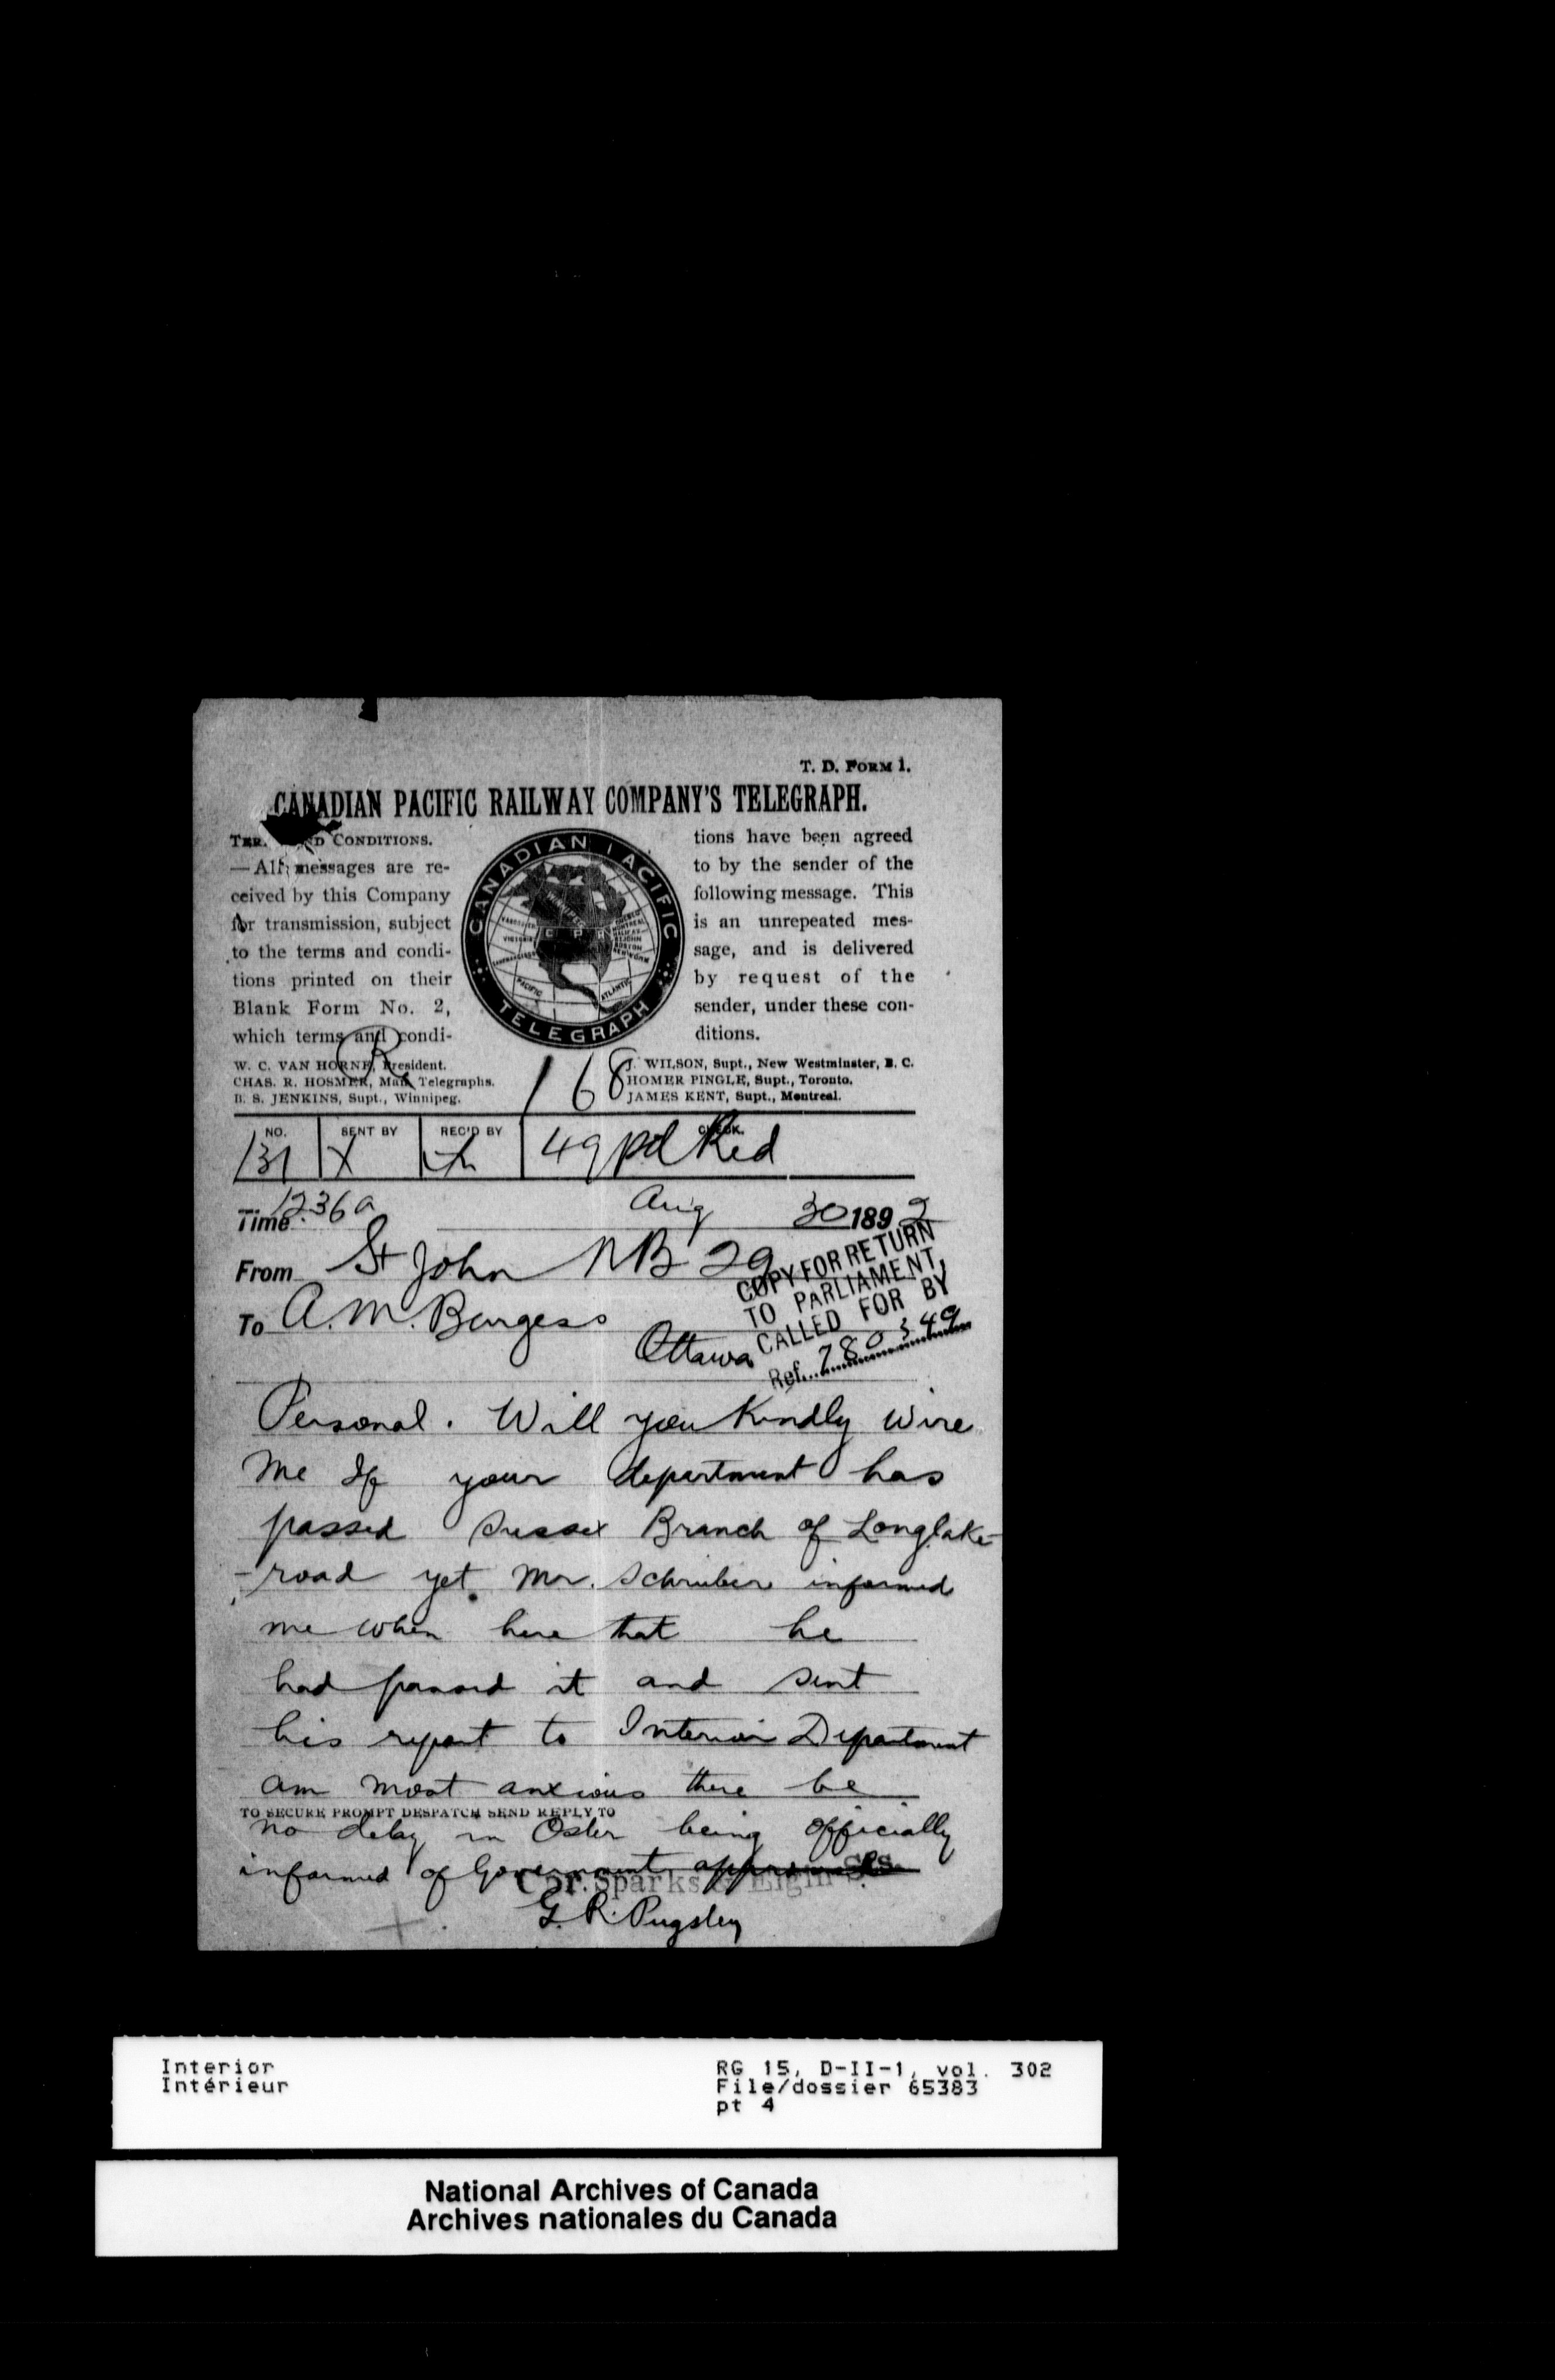 T. D. FORM 1.
CANADIAN PACIFIC RAILWAY COMPANY'S TELEGRAPH.
CONDITIONS.
—All messages are re-
ceived by this Company
for transmission, subject
to the terms and condi-
tions printed on their
Blank Form No. 2,
which terms and condi-
CANADIAN PACIFIC
TELEGRAPH
WINNIPEG
VANCOUVER
VICTORIA
C P R
QUEBEC
MONTREAL
HALIFAX
ST JOHN
BOSTON
NEW YORK
PACIFIC
ATLANTIC
tions have been agreed
to by the sender of the
following message. This
is an unrepeated mes-
sage, and is delivered
by request of the
sender, under these con-
ditions.
W. C. VAN HORNE, President.
CHAS. R. HOSMER, Man. Telegraphs.
B. S. JENKINS, Supt., Winnipeg.
168
J. WILSON, Supt., New Westminster, B. C.
HOMER PINGLE, Supt., Toronto.
JAMES KENT, Supt., Montreal.
NO. SENT BY REC'D BY CHECK.
131 X 49 pd Red
Time 1236 a Aug 30 1892
From St John NB 29
To A. M. Burgess
Ottawa
COPY FOR RETURN
TO PARLIAMENT,
CALLED FOR BY
Ref. 280349
Personal. Will you kindly wire
me If your department has
passed Sussex Branch of Longlake
road yet. Mr. Schriber informed
me when here that he
had passed it and sent
his report to Interior Department
am most anxious there be
TO SECURE PROMPT DESPATCH SEND REPLY TO
no delay in Osler being officially
informed of Government approval
Cor. Sparks & Elgin Sts.
G. R. Pugsley
Interior
Intérieur
RG 15, D-II-1, vol. 302
File/dossier 65383
pt 4
National Archives of Canada
Archives nationales du Canada